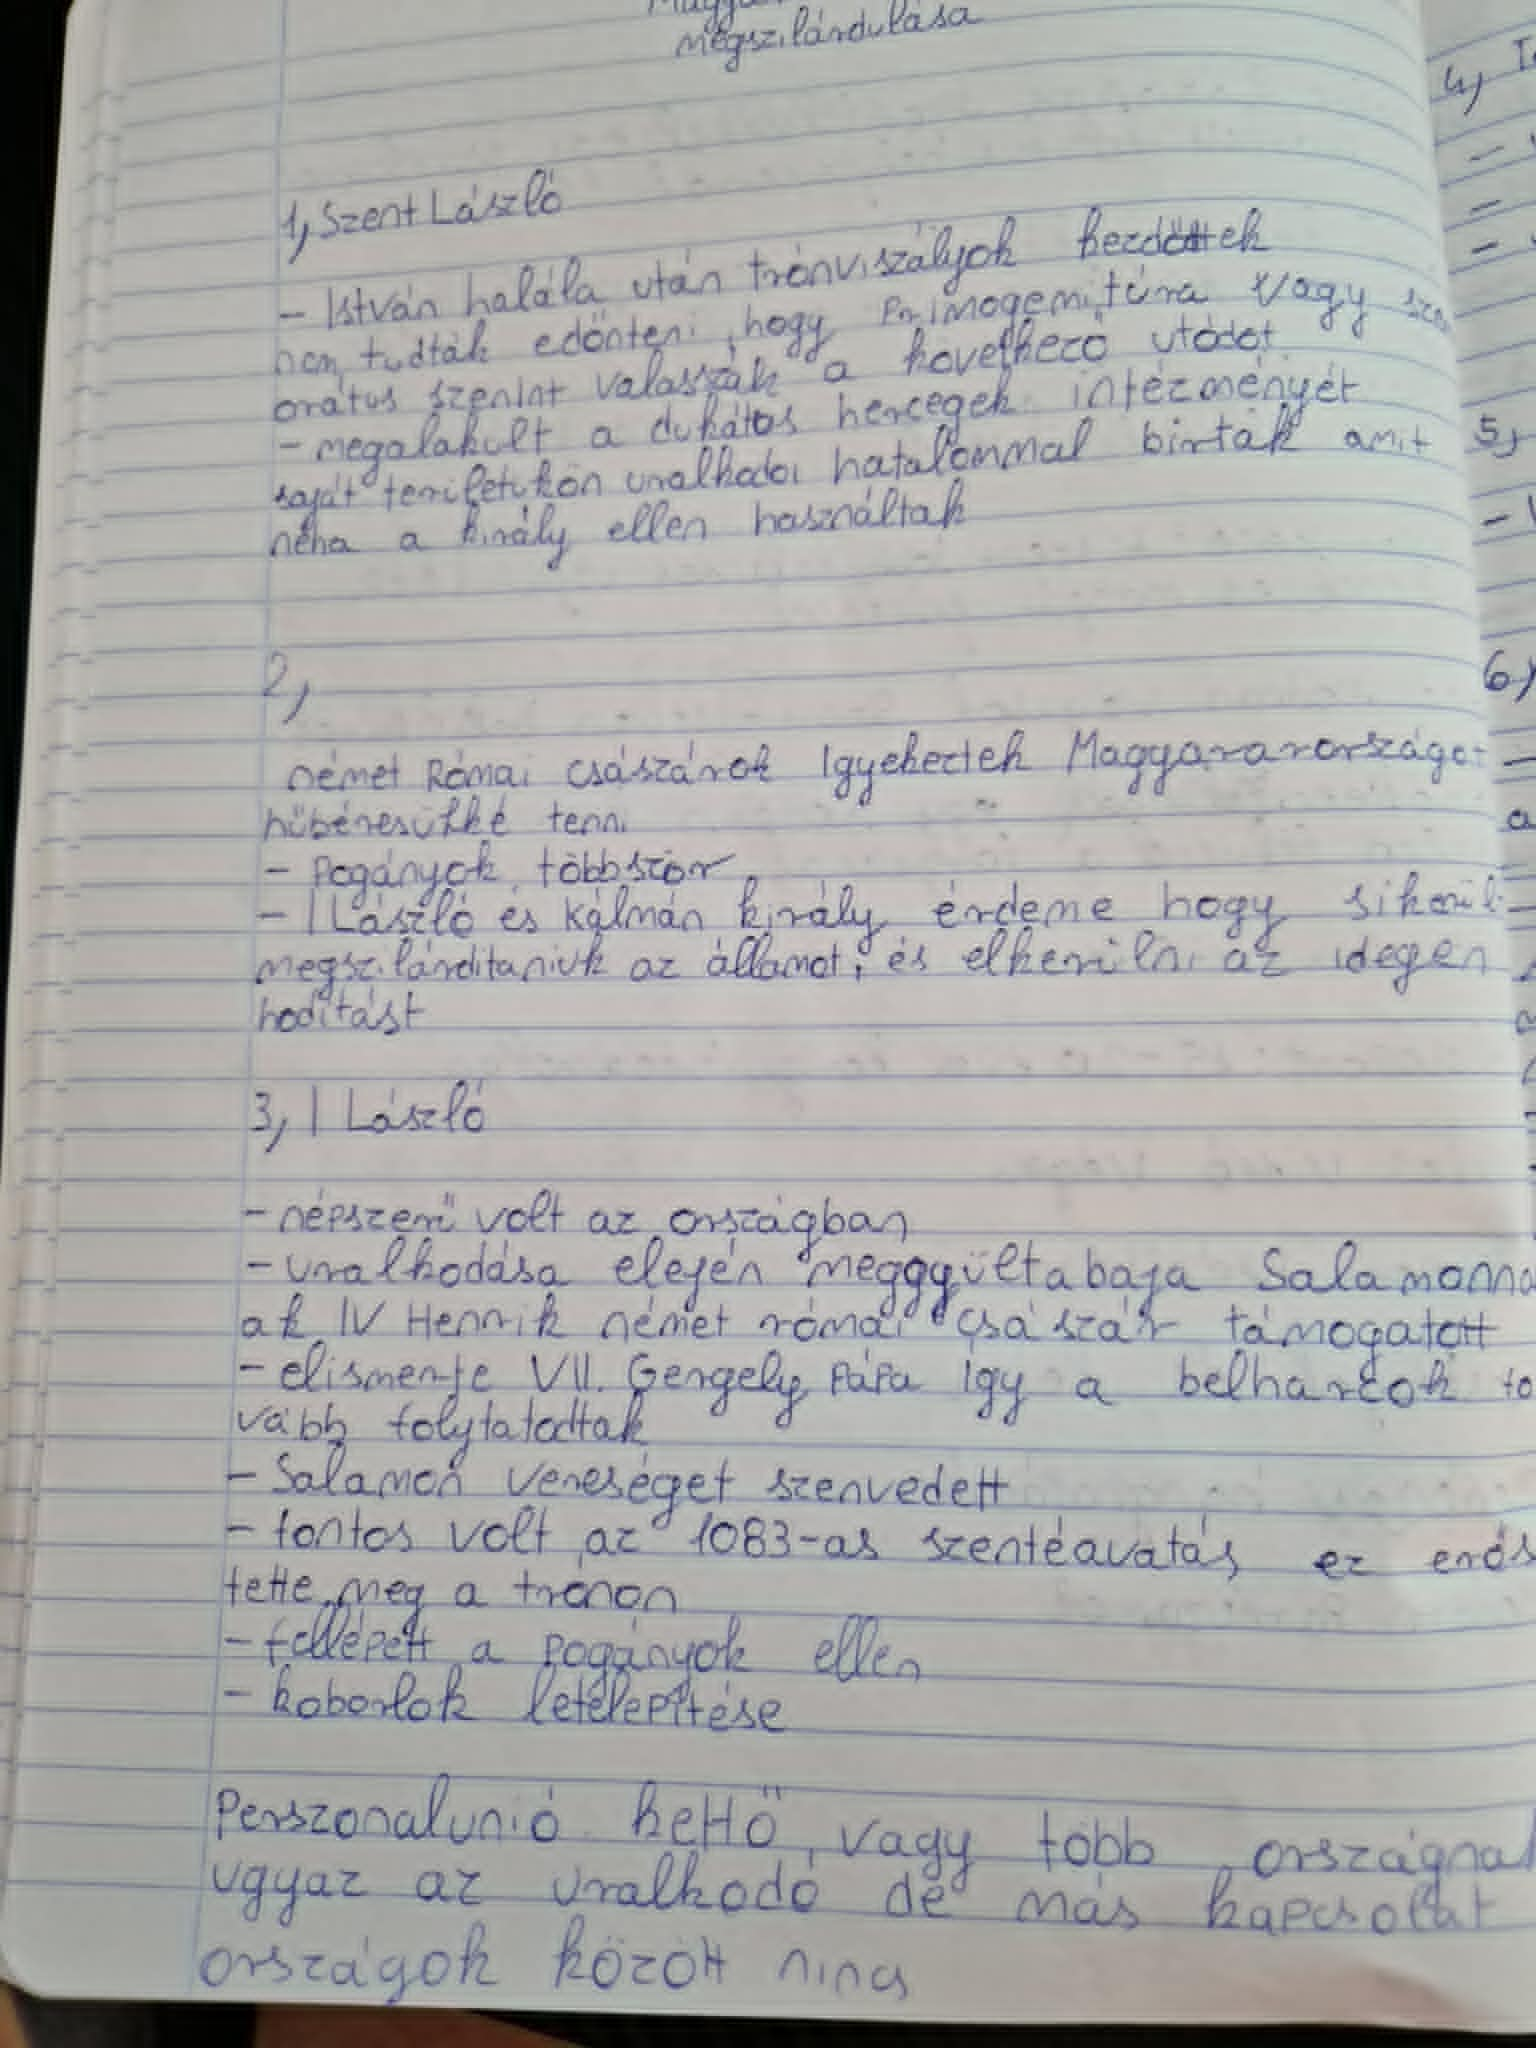 megszilárdulása
1, Szent László
- István halála után trónviszályok kezdőttek
nem tudták edönteni, hogy Primogenitúra vagy sze
orátus szerint valasszák a kovetkező utódot
- megalakult a dukátos hercegek intézményét
saját teriletükön uralkodoi hatalommal birtak amit
néha a király ellen használtak
2,
német Római császárok Igyekeztek Magyararországot
hűbéresükké tenni
- Pogányok többször
- I László és Kálmán király érdeme hogy sikerül
megszilárditaniuk az államot, és elkerülni az idegen
hodítást
3, I László
- népszerű volt az országban
- uralkodása elején meggyűlt a baja Salamonna
ak IV Henrik német római császár támogatott
- elismerte VII. Gergely Pápa így a belharcok to
vább folytatodtak
- Salamon vereséget szenvedett
- fontos volt az 1083-as szentéavatás ez erős
tette meg a trónon
- fellépett a pogányok ellen
- koborlok letelepítése
Perszonalunió kettő, vagy több országnal
ugyaz az uralkodó de más kapcsolat
országok között nincs
4,
5,
6,